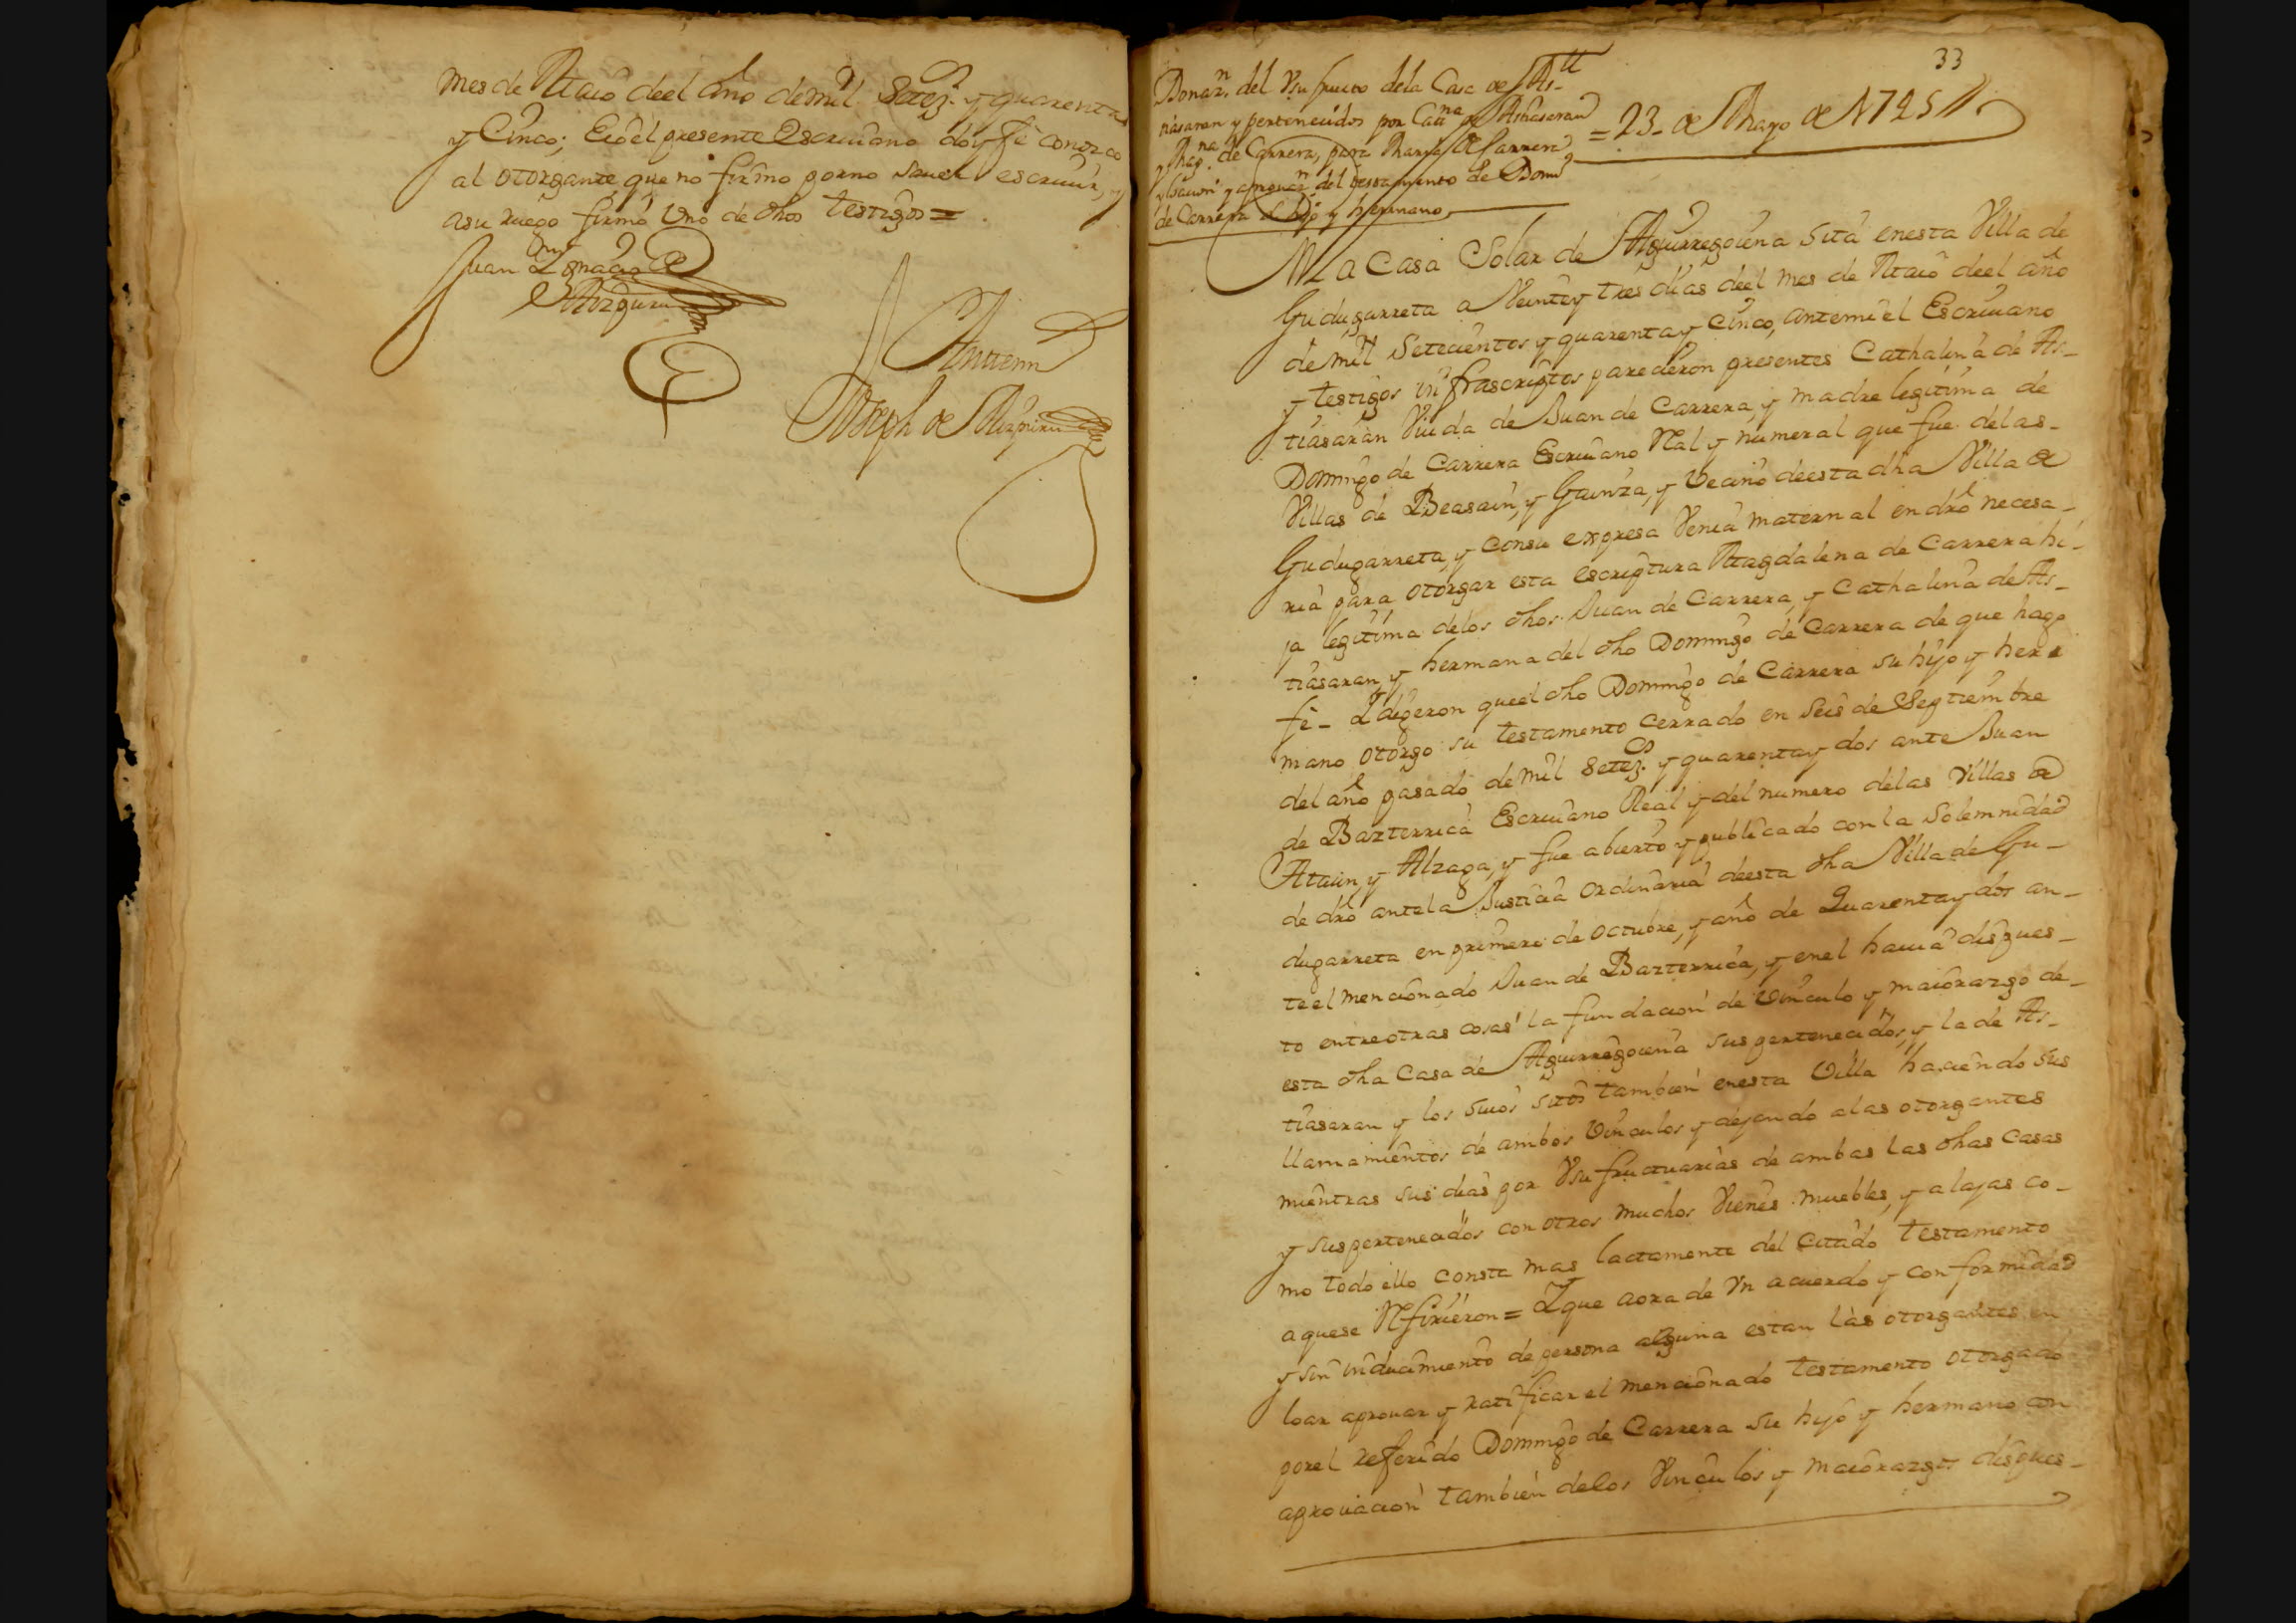 mes de Maio deel año de mil Setez.s y quarenta
y Cinco; Eio el presente Escriuano doy fè conozco
al otorgante que no firmo por no sauer escriuir, y
a su ruego firmó Uno de dhos testigos =
Juan Ignacio de
Antemi
Joseph de
33
Donaz.n del Vsufructo dela Casa de As-
tiasaran y pertenecidos por Cat.na de Astiasaran
y Mag.na de Carrera, para Maria de Carrera
y aprouaz.n del testamento de Dom.o
de Carrera su hijo y hermano
= 23 de Mayo de 1745
En La Casa Solar de Aguirregoiena sita enesta Villa de
Gudugarreta a Veinte y tres dias deel mes de Maio deel año
de mil Setecientos y quarenta y Cinco, antemi el Escriuano
y testigos infrascriptos parecieron presentes Cathalina de As-
tiasaran Viuda de Juan de Carrera, y madre legitima de
Domingo de Carrera Escriuano Real y numeral que fue delas-
Villas de Beasain, y Gainza, y Vecino deesta dha Villa de
Gudugarreta, y consu expresa Venia maternal en dro necesa-
ria para otorgar esta escriptura Magdalena de Carrera hi-
ja legitima delos dhos Juan de Carrera, y Cathalina de As-
tiasaran, y hermana del dho Domingo de Carrera de que hago
fè- I digeron queel dho Domingo de Carrera su hijo y her-
mano otorgo su testamento cerrado en Seis de Septiembre
del año pasado de mil Setez.s y quarenta y dos ante Juan
de Bazterrica Escriuano Real y del numero delas Villas de
Ataun, y Alzaga, y fue abierto y publicado con la Solemnidad
de dro antela Justicia Ordinaria deesta dha Villa de Gu-
dugarreta en primero de octubre, y año de Quarenta y dos an-
te el mencionado Juan de Bazterrica, y enel hauia dispues-
to entre otras cosas la fundacion de Vinculo y maiorazgo de-
esta dha Casa de Aguirregoiena sus pertenecidos, y la de As-
tiasaran y los Suios sitos tambien enesta Villa haciendo sus
llamamientos de ambos Vinculos y dejando alas otorgantes
mientras sus dias por Vsufructuarias de ambas las dhas Casas
y sus pertenecidos con otros muchos Vienes muebles, y alajas co-
mo todo ello consta mas lactamente del Citado testamento
a quese Refirieron = Y que aora de Vn acuerdo y conformidad
y sin inducimiento de persona alguna estan las otorgantes en
loar aprouar y ratificar el mencionado testamento otorgado
porel referido Domingo de Carrera su hijo y hermano con
aprouacion tambien delos Vinculos y maiorazgos dispues-